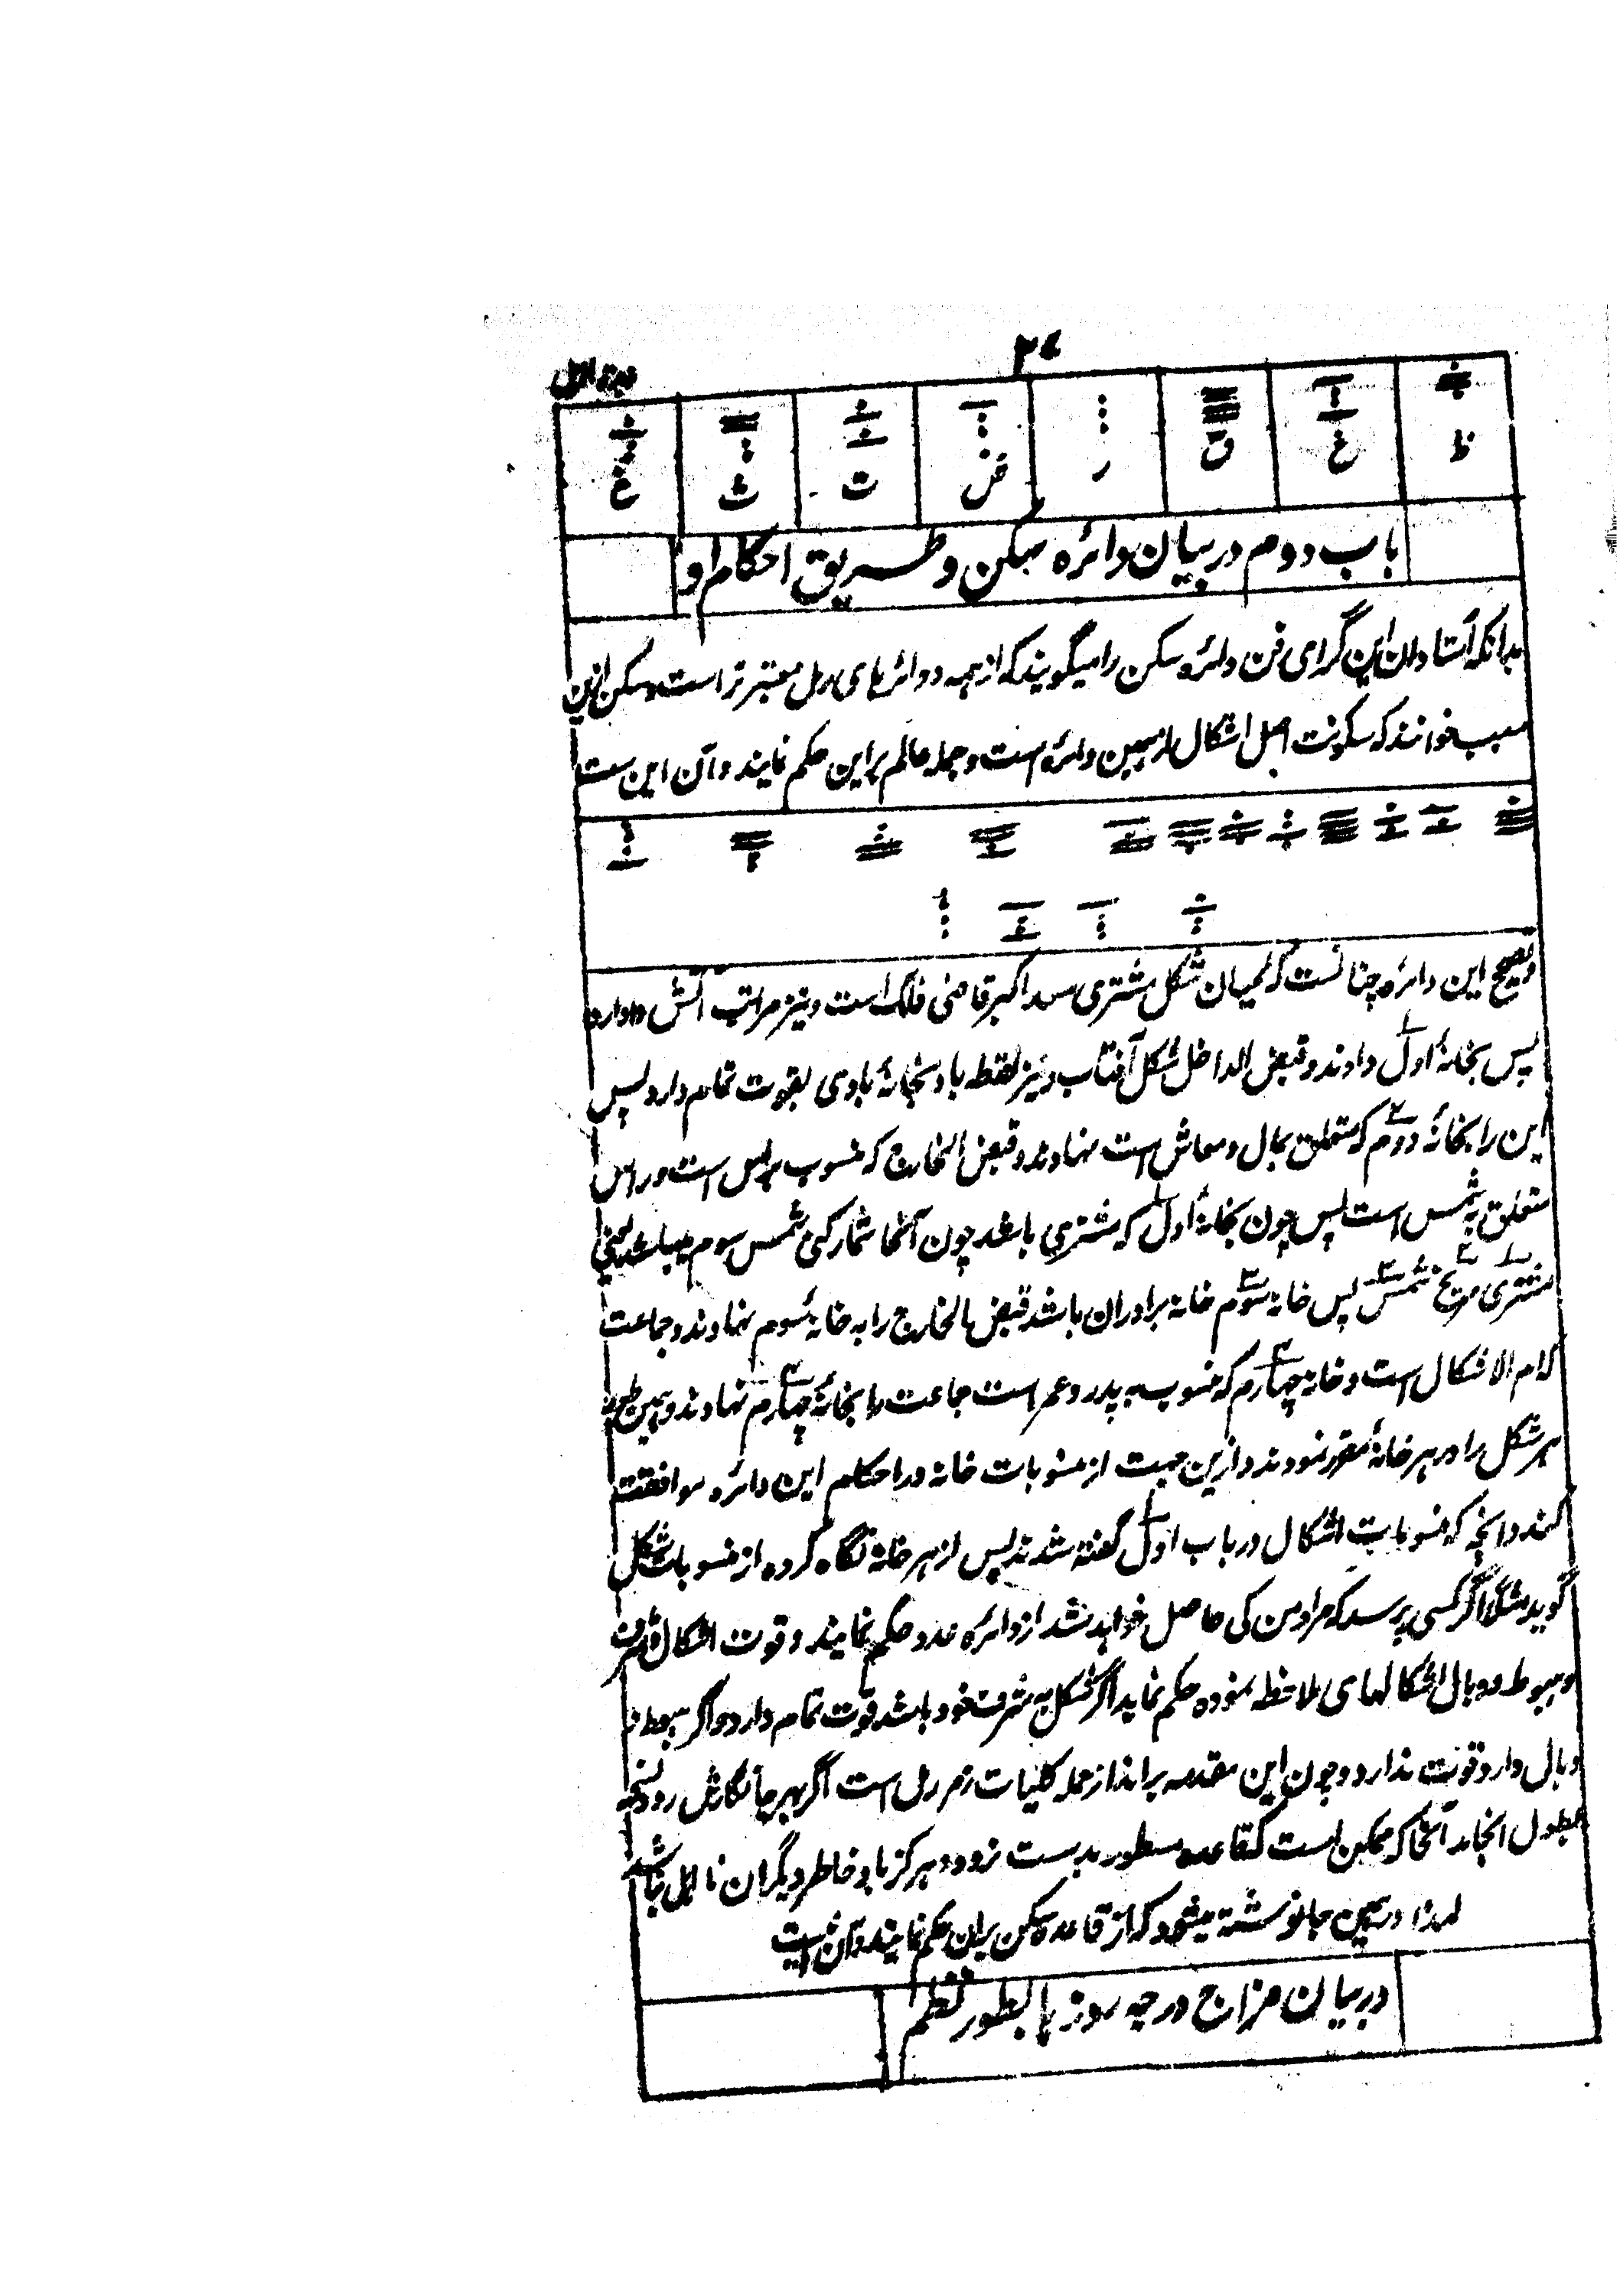 ۲۴
ظ غ ق ر ض ت ث غ
باب دوم در بیان دائره سکن و طریق احکام او
بدانکه استادان این گرامی فن دائره سکن را میگویند که از همه دوائرهای رمل معتبرتر است و سکن ازین
سبب خوانند که سکونت اصل اشکال از همین دائره است و جمله عالم براین حکم نمایند و آن این ست
این دائره چنانست که لحیان شکل مشتری سعد اکبر قاضی فلک است و نیز مراتب آتش دارد
پس بخانۀ اول دادند و قبض الداخل شکل آفتاب و نیز نقطه باد بخانۀ بادی بقوت تمام دارد پس
این را بخانۀ دوم که متعلق بمال و معاش است نهادند و قبض الخارج که منسوب براس است و راس
متعلق به شمس است پس چون بخانۀ اول که مشتری باشد چون آنجا شمار کنی شمس سوم میباشد یعنی
مشتری مریخ شمس پس خانۀ سوم خانه برادران باشد قبض الخارج را به خانۀ سوم نهادند و جماعت
ام الاشکال است و خانۀ چهارم که منسوب به پدر و عمر است جماعت را بخانۀ چهارم نهادند و همین طور
هر شکل را در هر خانۀ مقرر نمودند و ازین جهت از منسوبات خانه در احکام این دائره موافقت
کنند و آنچه که منسوبات اشکال در باب اول گفته شدند پس از هر خانه نگاه کرده از منسوبات شکل
گوید مثلا اگر کسی پرسد که مراد من کی حاصل خواهد شد از دائره عدد حکم نمایند و قوت اشکال و شرف
و هبوط و وبال اشکالهای ملاحظه نموده حکم نماید اگر شکل به شرف خود باشد قوت تمام دارد و اگر هبوط و
وبال دارد قوت ندارد و چون این مقدمه از جمله کلیات رمز رمل است اگر بهر جا نگارش رود نسخه
بطول انجامد آنجا که ممکن است که قاعده مسطور بدست نرود و هرگز بخاطر دیگران نا اهل نباشد
لهذا در همین جا نوشته میشود که از قاعده سکن بران حکم نمایند و آن اینست
در بیان مزاج درجه روزها بطور نظم